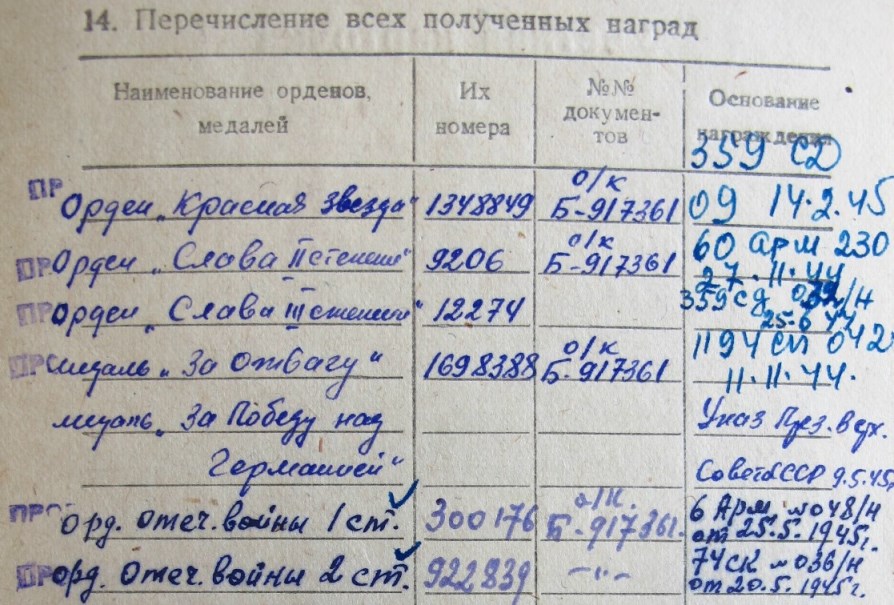 14. Перечисление всех полученных наград
Наименование орденов, медалей
Их номера
№№ документов
Основание награждения
359 СД
ПР Орден „Красная Звезда" 1348849 о/к Б-917361 09 14.2.45
ПРО Орден „Слава II степени" 9206 о/к Б-917361 60 арм 230 27.11.44
ПРО Орден „Слава III степени" 12274 359 сд /н 25.6 44
ПРО медаль „За Отвагу" 1698388 о/к Б-917361 1194 сп 042 11.11.44.
медаль „За Победу над Указ През. Верх.
Германией" Совета СССР 9.5.45
ПРО орд. отеч. войны 1 ст. 300176 о/к. Б-917361. 6 Арм. №048/н от 25.5.1945г.
ПРО орд. отеч. войны 2 ст. 922839 -"- 74 СК №036/н от 20.5.1945г.